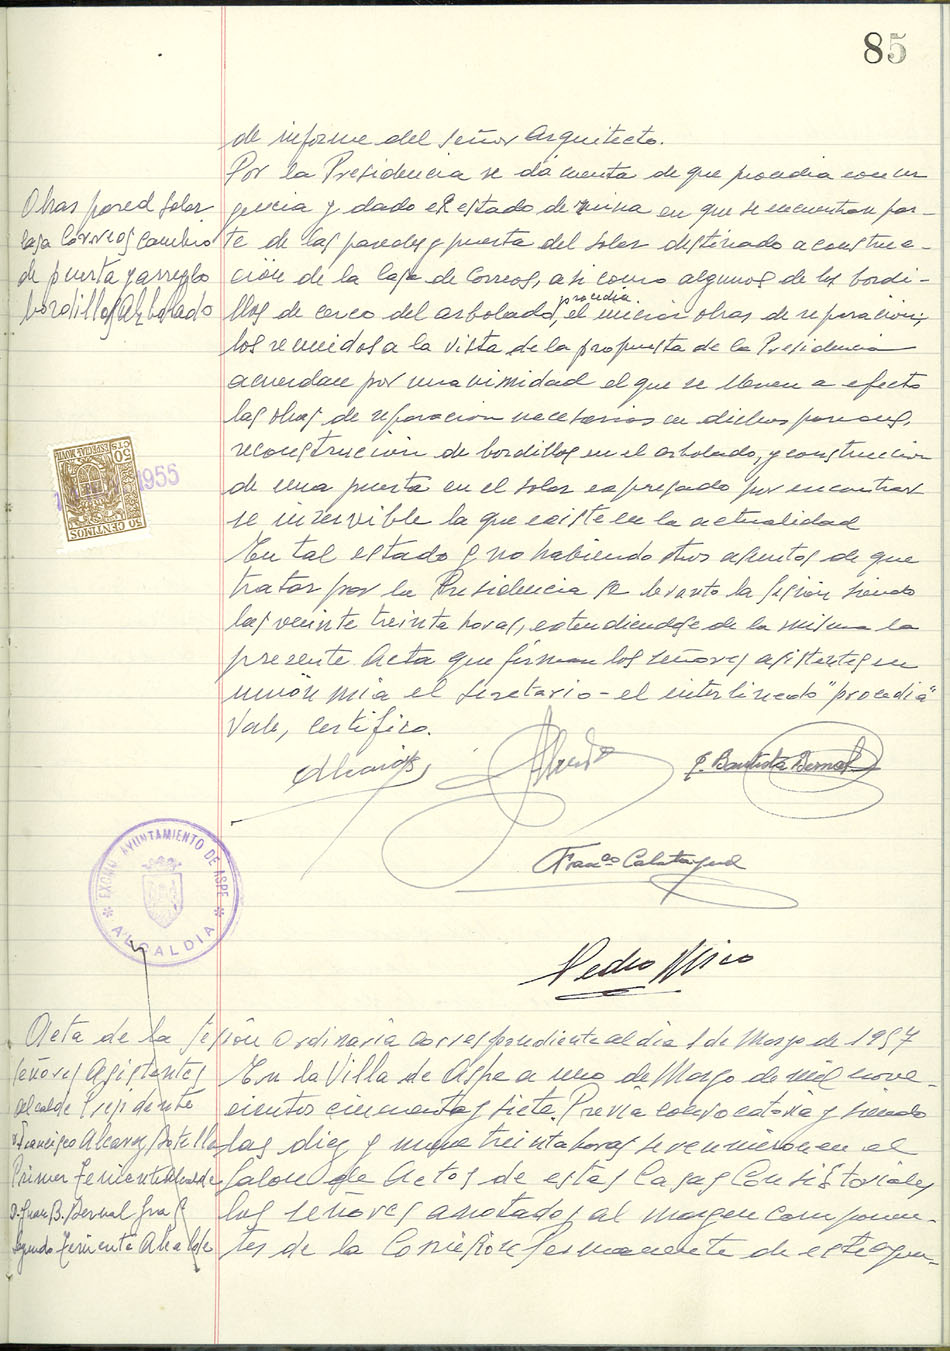 85
de informe del Señor Arquitecto.
Por la Presidencia se dá cuenta de que procedia con ur
gencia y dado el estado de ruina en que se encuentran par-
te de las paredes y puerta del solar destinado a construc-
ción de la Casa de Correos, asi como algunos de los bordi-
llos de cerco del arbolado, procedia el iniciar obras de reparación,
los reunidos a la vista de la propuesta de la Presidencia
acuerdan por unanimidad el que se lleven a efecto
las obras de reparacion necesarias en dichos paredes,
reconstruccion de bordillos en el arbolado, y construccion
de una puerta en el solar expresado por encontrar
se inservible la que existe en la actualidad
En tal estado y no habiendo otros asuntos de que
tratar por la Presidencia se levanto la sesión siendo
las veinte treinta horas, extendiendose de la misma la
presente Acta que firman los señores asistentes en
unión mia el Secretario - el interlineado "procedia"
Vale, Certifico.
Obras pared Solar
Casa Correos cambio
de puerta y arreglo
bordillos Arbolado
50 CTS ESPECIAL MOVIL
50 CENTIMOS
1955
Alcaraz
J. Bautista Bernal
Franco Calatayud
Pedro Mico
EXCMO AYUNTAMIENTO DE ASPE
ALCALDIA
Acta de la Sesión Ordinaria correspondiente al dia 1 de Marzo de 1957
Señores Asistentes
Alcalde Presidente
D. Francisco Alcaraz Botella
Primer Teniente Alcalde
D. Juan B. Bernal Gras
Segundo Teniente Alcalde
En la Villa de Aspe a uno de Marzo de mil nove-
cientos cincuenta y siete. Previa convocatoria y siendo
las diez y nueve treinta horas se reunieron en el
Salon de Actos de estas Casas Consistoriales
los señores anotados al margen componen-
tes de la Comisión Permanente de este Ayun-